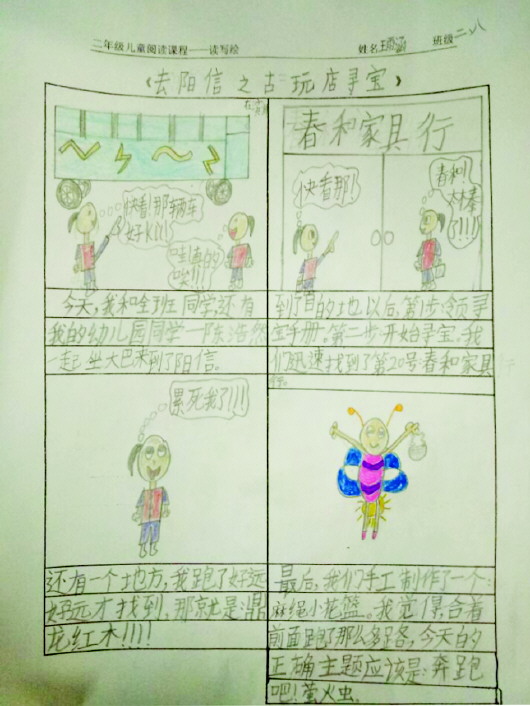 二年级儿童阅读课程——读写绘
姓名
班级二、八
《去阳信之古玩店寻宝》
快看!那辆车
好Kill
哇!真的
唉!!!
今天,我和全班同学,还有
我的幼儿园同学—陈浩然
一起坐大巴来到了阳信。
春和家具行
快看那!
春和!
太棒
了!!!!
到了目的地以后,第1步领寻
宝手册,第二步开始寻宝。我
们迅速找到了第20号春和家具
行。
累死我了!!!
还有一个地方,我跑了好远
好远才找到,那就是:鼎
龙红木!!!!
最后,我们手工制作了一个:
麻绳小花篮。我觉得,合着
前面跑了那么多路,今天的
正确主题应该是:奔跑
吧!萤火虫.